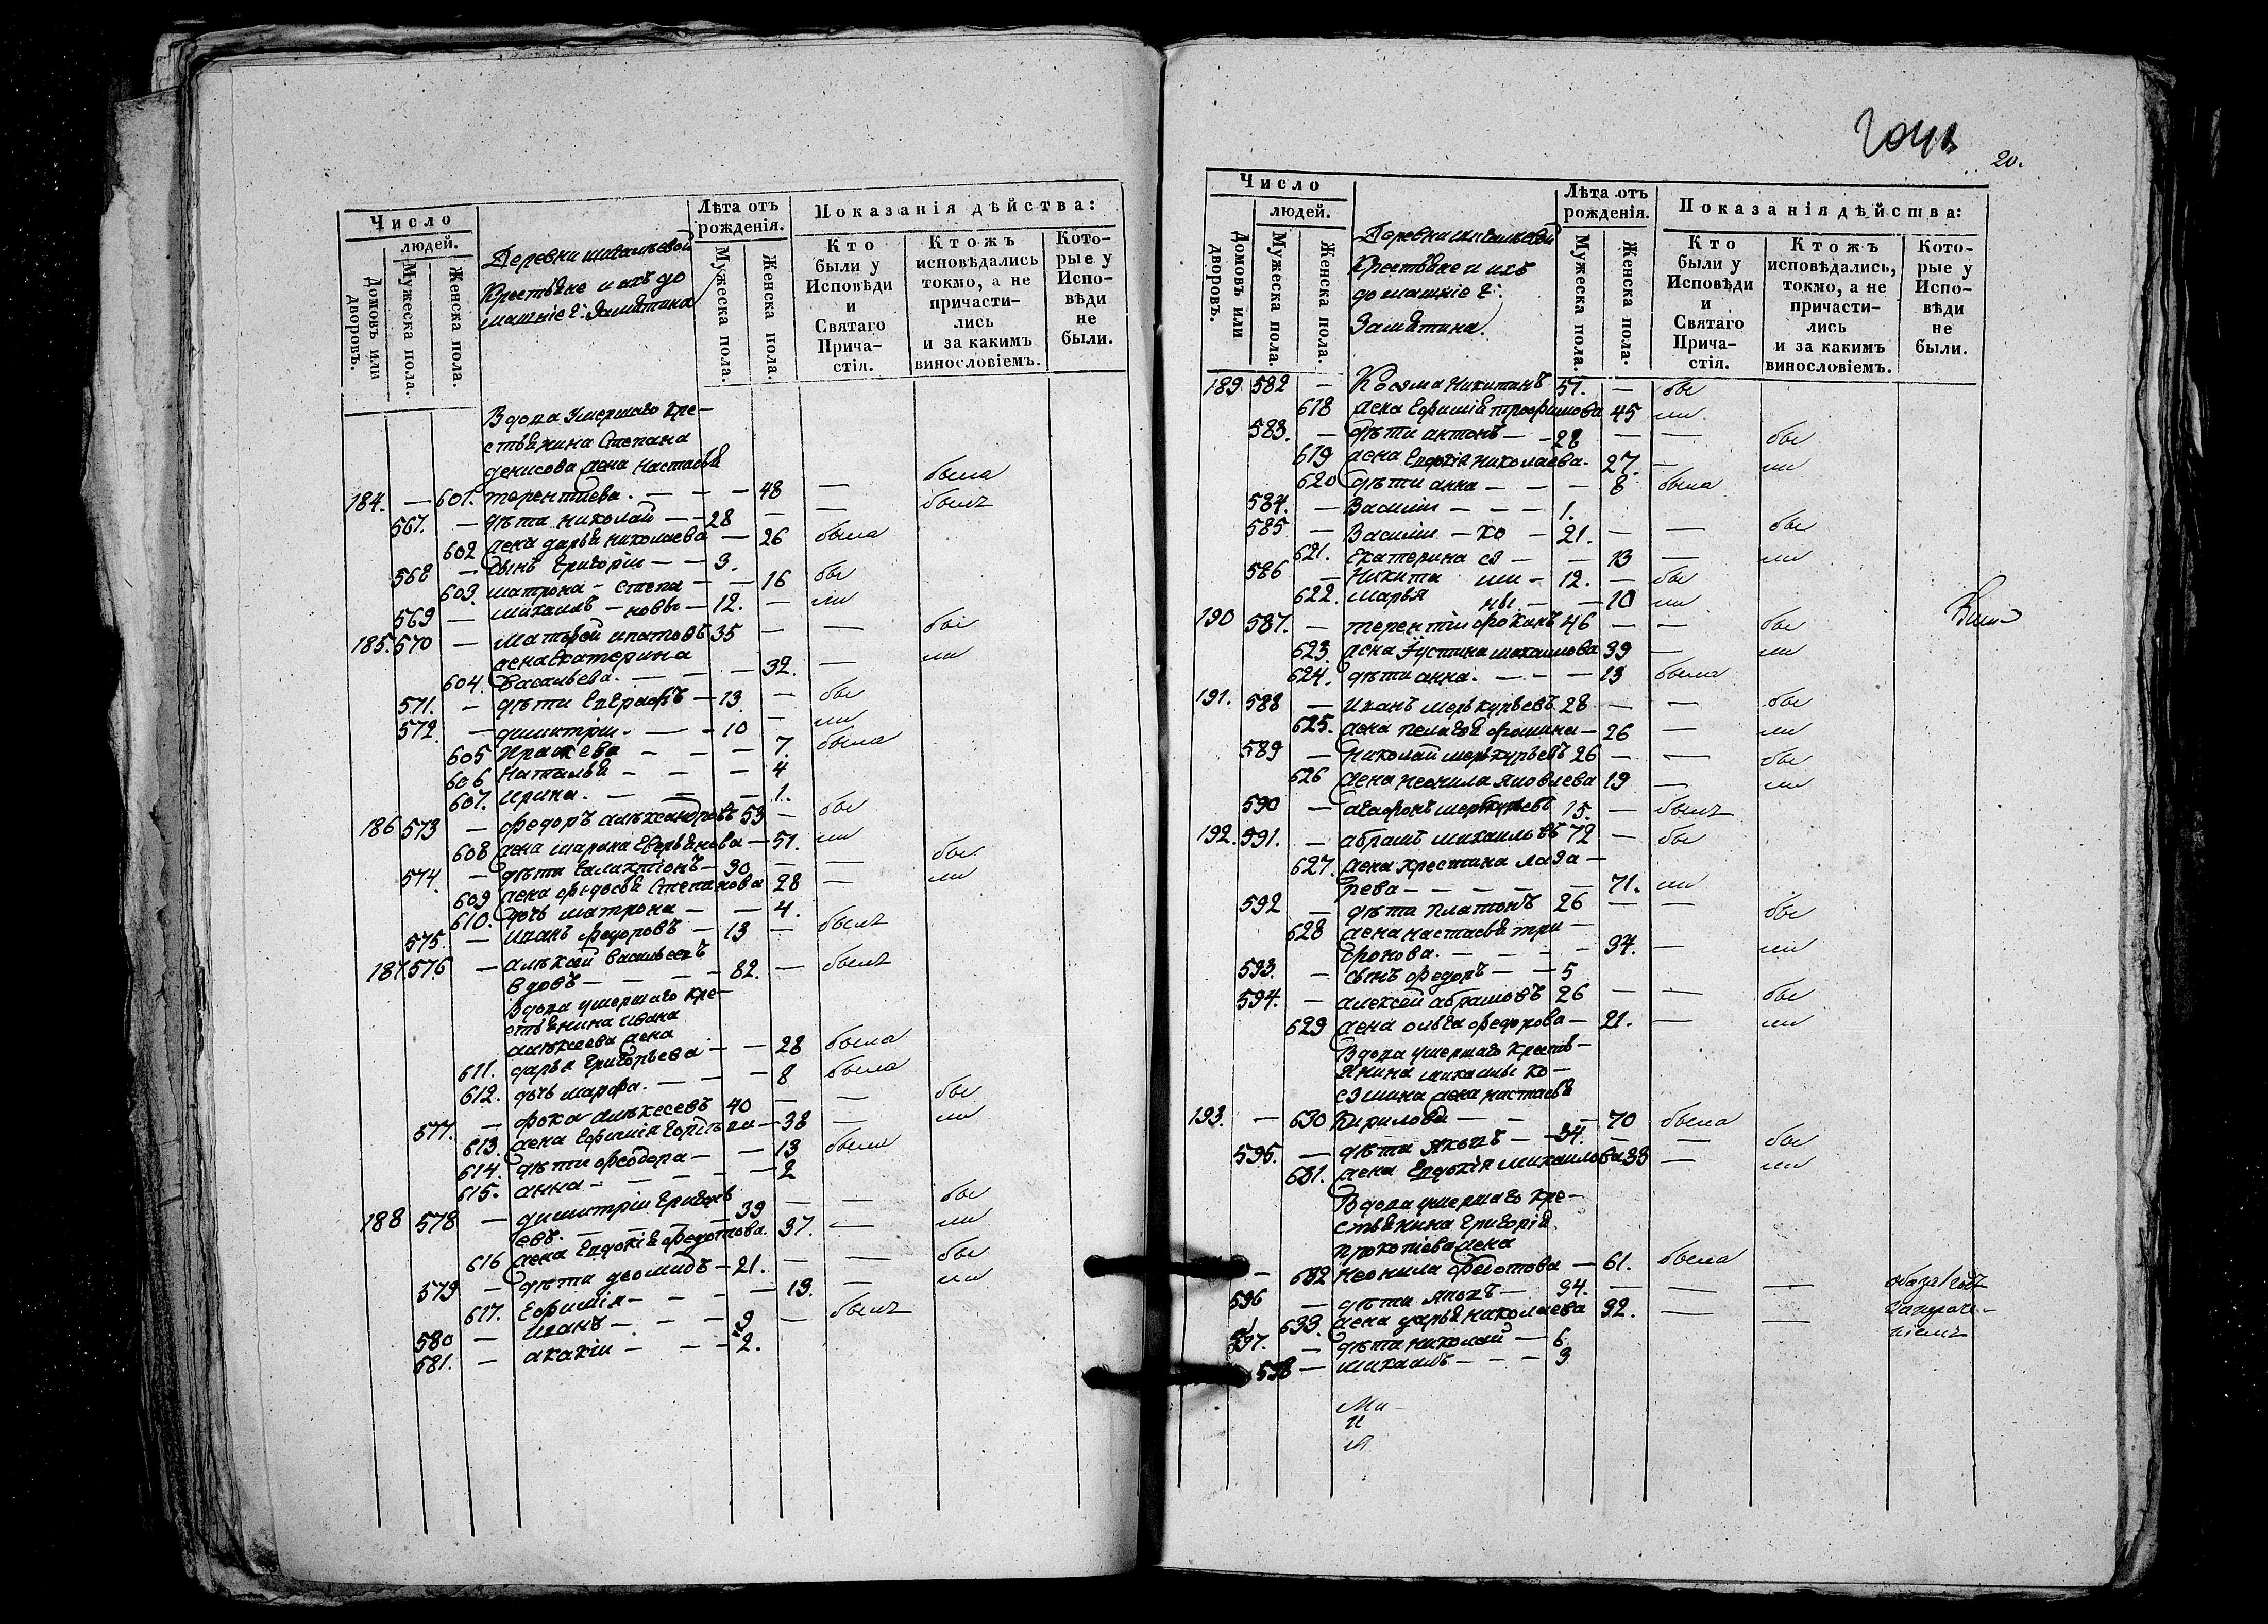 Число
людей.
Домовъ или дворовъ.
Мужеска пола.
Женска пола.
Деревни
Крестьяне и ихъ до
машніе г: Замятина
Лѣта отъ рожденія.
Мужеска пола.
Женска пола.
Показанія дѣйства:
Кто были у Исповѣди и Святаго Причастія.
Ктожъ исповѣдались токмо, а не причастились и за какимъ винословіемъ.
Которые у Исповѣди не были.
Вдова умершаго кре-
стьянина Степана
денисова жена настасья
184. — 601. терентиева. — — — 48 — была
567. — дѣти николай — — 28 — — былъ
602 жена дарья николаева — 26 была
568 — сынъ григорій — — 3.
603. матрона — степа — — 16 бы
569 — михаилъ — новы — 12. — ли
185. 570 — матвѣй ипатовъ 35 — — бы
жена Екатерина
604. Васильева. — — — 32. — ли
571. — дѣти Евграфъ — 13 — бы
572. — димитрій. — — 10 — ли
605 — — — 7. была
606 наталья — — — 4
607. ирина. — — — 1.
186 573 — федоръ алѣксандровъ 53 — бы
608 жена марина — 51. ли
574. — дѣти галактіонъ — 30 — — бы
609 жена федосья Степанова 28 — ли
610. дочь матрона — — 4.
575. — иванъ федоровъ — 13 — былъ
187 576 — алѣксѣй васильевъ
вдовъ — — — 82. — былъ
Вдова умершаго кре-
стьянина ивана
алѣксеева жена
611. дарья григорьева — — 28 была
612. дочь марфа. — — — 8 была
577. — фока алѣксеевъ 40 — — бы
613. жена Ефимія — 38 — ли
614. дѣти феодора — — 13 была
615. анна — — — — 2
188 578 — димитрій григорь
евъ. — — 39 — — бы
616 жена Евдокія федотова. 37. — ли
579 — дѣти деомидъ — 21. — — бы
617. Ефимія — — — — 19. — ли
580 — иванъ — — — 9 — былъ
581. — акакій — — — 2.
20.
Число
людей.
Домовъ или дворовъ.
Мужеска пола.
Женска пола.
Деревни
Крестьяне и ихъ
домашніе г:
Замятина.
Лѣта отъ рожденія.
Мужеска пола.
Женска пола.
Показанія дѣйства:
Кто были у Исповѣди и Святаго Причастія.
Ктожъ исповѣдались, токмо, а не причастились и за какимъ винословіемъ.
Которые у Исповѣди не были.
189. 582 — Козма никитинъ 51. — бы
618 жена Ефимія трофимова 45 ли
583. — дѣти антонъ — — 28 — — бы
619 жена Евдокія николаева. 27. — ли
620 дѣти анна — — — 8 была
584. — Василій — — — 1.
585 — Василій — ко — 21. — — бы
621. Екатерина сз — — 13 — ли
586 — Никита ми — 12. — бы
622. марья ны. — — 10 ли
190 587. — терентій фокинъ 46 — — бы
623. жена Устина михаилова 39 — ли
624. дѣти анна. — — — 13 была
191. 588 — иванъ меркурьевъ 28 — — бы
625. жена пелагея фомина — 26 — ли
589 — николай меркурьевъ 26 — — бы
626 жена неонила яковлева 19 — ли
590 — агафонъ меркурьевъ 15. — былъ
192. 591. — абрамъ михаиловъ 72 — бы
627. жена хрестина лаза —
рева — — — — — 71. ли
592 — дѣти платонъ 26 — — бы
628 жена настасья три —
фонова. — — — — 34. — ли
593. — сынъ федоръ — — 5
594. — алексей абрамовъ 26 — — бы
629 жена ольга федорова — 21. — ли
Вдова умершаго кресть —
янина михаилы ко —
смина жена настасья
193. — 630 Кирилова — — — 70 была
595. — дѣти яковъ — — 34. — — бы
631. жена Евдокія михаилова 38 — ли
Вдова умершаго кре —
стьянина григорія
прокопіева жена
— 632 неонила федотова — 61. была
596 — дѣти яковъ — 34. — —
633 жена дарья николаева 32. — —
597. — дѣти николай — 6.
598 — михаилъ — — — 3